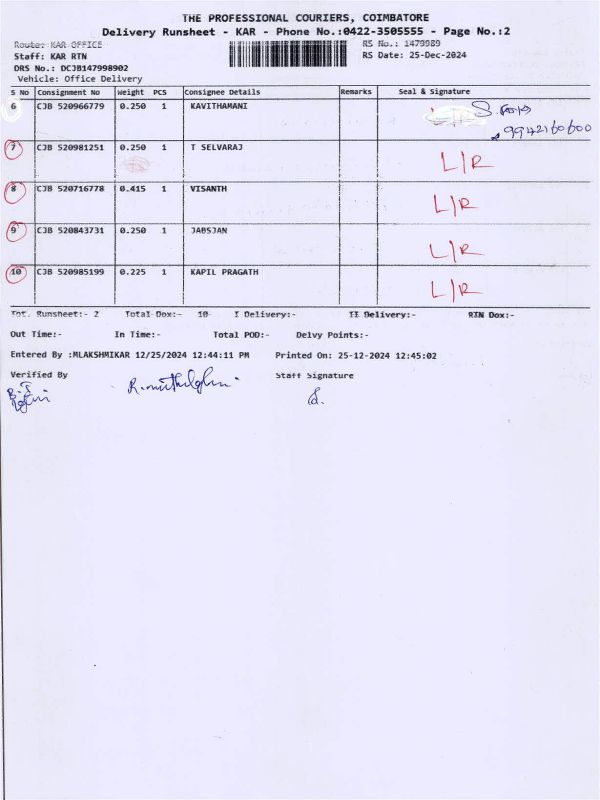 THE PROFESSIONAL COURIERS, COIMBATORE
Delivery Runsheet - KAR - Phone No.:0422-3505555 - Page No.:2
Route: KAR OFFICE
RS No.: 1479989
Staff: KAR RTN
RS Date: 25-Dec-2024
DRS No.: DCJB147998902
Vehicle: Office Delivery
S No Consignment No Weight PCS Consignee Details Remarks Seal & Signature
6 CJB 520966779 0.250 1 KAVITHAMANI
9942160600
7 CJB 520981251 0.250 1 T SELVARAJ L/R
8 CJB 520716778 0.415 1 VISANTH L/R
9 CJB 520843731 0.250 1 JABSJAN L/R
10 CJB 520985199 0.225 1 KAPIL PRAGATH L/R
Tot. Runsheet:- 2 Total Dox:- 10 I Delivery:- II Delivery:- RTN Dox:-
Out Time:- In Time:- Total POD:- Delvy Points:-
Entered By :MLAKSHMIKAR 12/25/2024 12:44:11 PM Printed On: 25-12-2024 12:45:02
Verified By Staff Signature